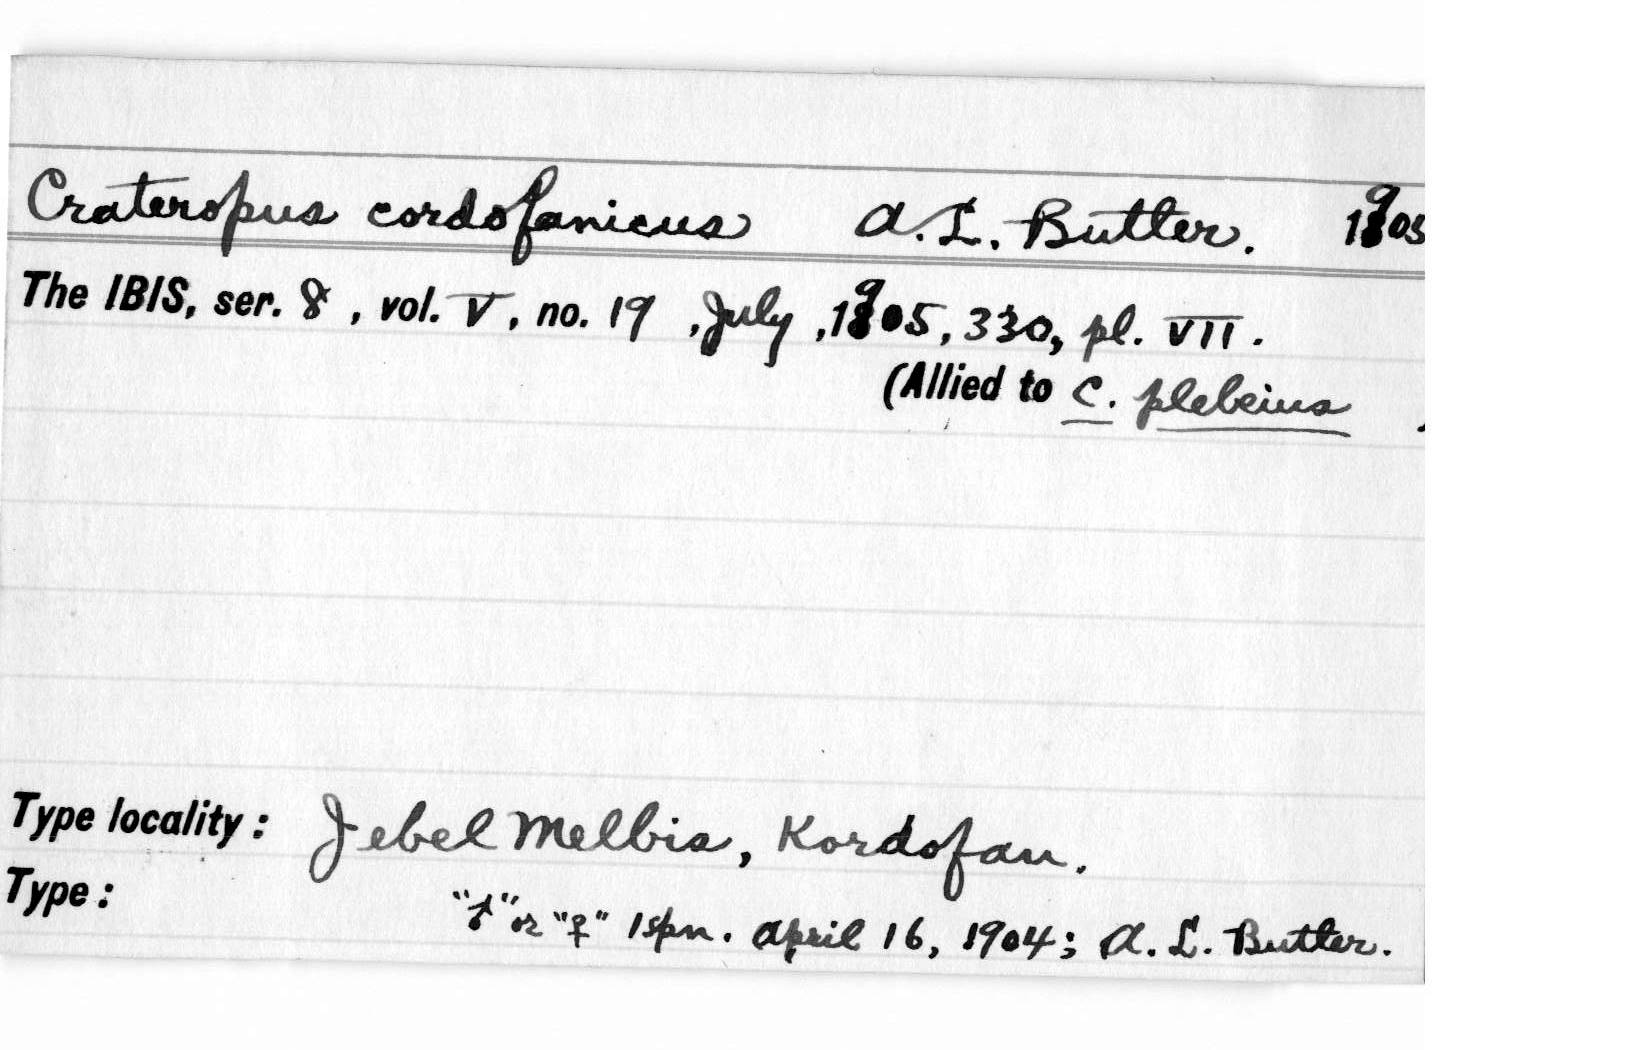 Crateropus cordofanicus A. L. Butler. 1905
The IBIS, ser. 8, vol. V, no. 19, July, 1905, 330, pl. VII.
(Allied to C. plebeius )
Type locality: Jebel Melbis, Kordofan.
Type: "♂" or "♀" 1 spn. April 16, 1904; A. L. Butler.